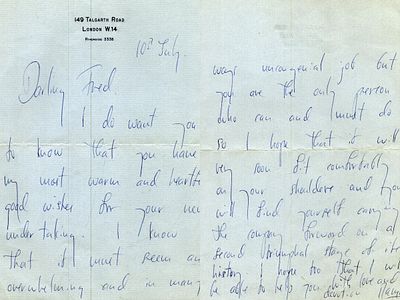 149 TALGARTH ROAD
LONDON W.14
RIVERSIDE 3338
10th July.
Darling Fred.
I do want you
to know that you have
my most warm and heartfelt
good wishes for your new
undertaking. I know
that it must seem an
overwhelming and in many
ways uncongenial job but
you are the only person
who can and must do
so I hope that it will
very soon fit comfortably
on your shoulders and you
will find yourself carrying
the company forward on a
second triumphal stage of its
history I hope too that I will
be able to help you with love and